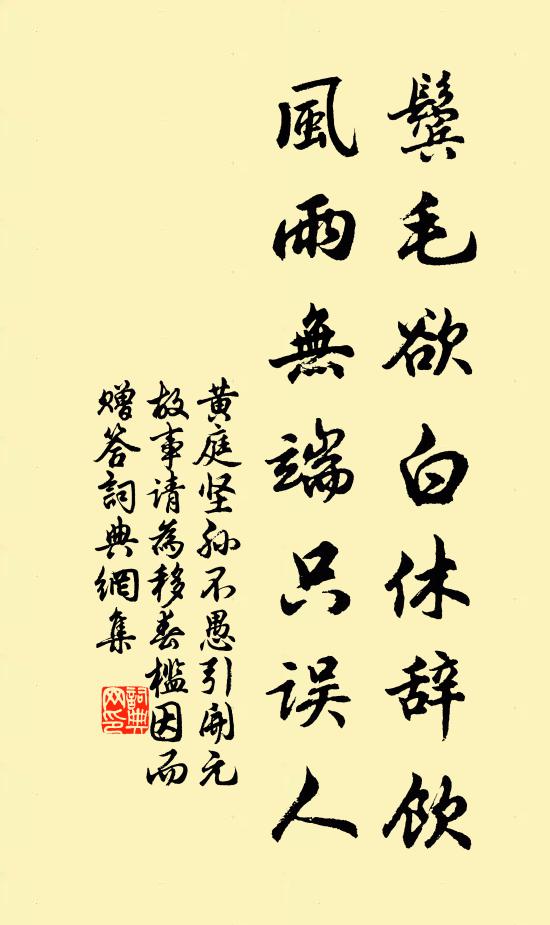 鬓毛欲白休辞饮
風雨無端只误人
黄庭坚孙不愚引開元
故事请為移春槛因而
赠答詞典網集
詞典
网印